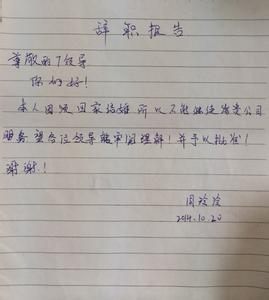 辞职报告
尊敬的领导
你们好!
本人因须回家结婚所以不能继续为贵公司
服务望各位领导能牢固理解!并予以批准!
谢谢.!
周玲玲
2014.10.20